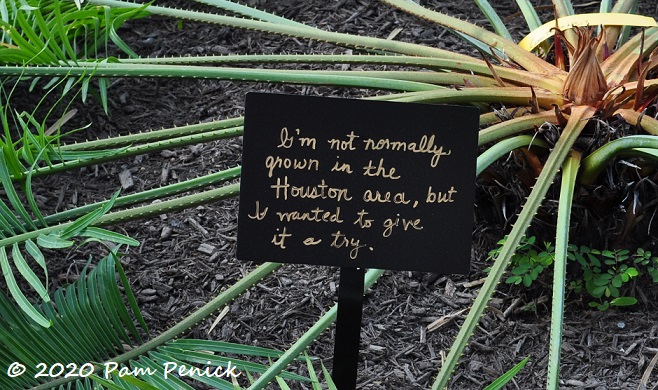 I'm not normally
grown in the
Houston area, but
I wanted to give
it a try.
© 2020 Pam Penick